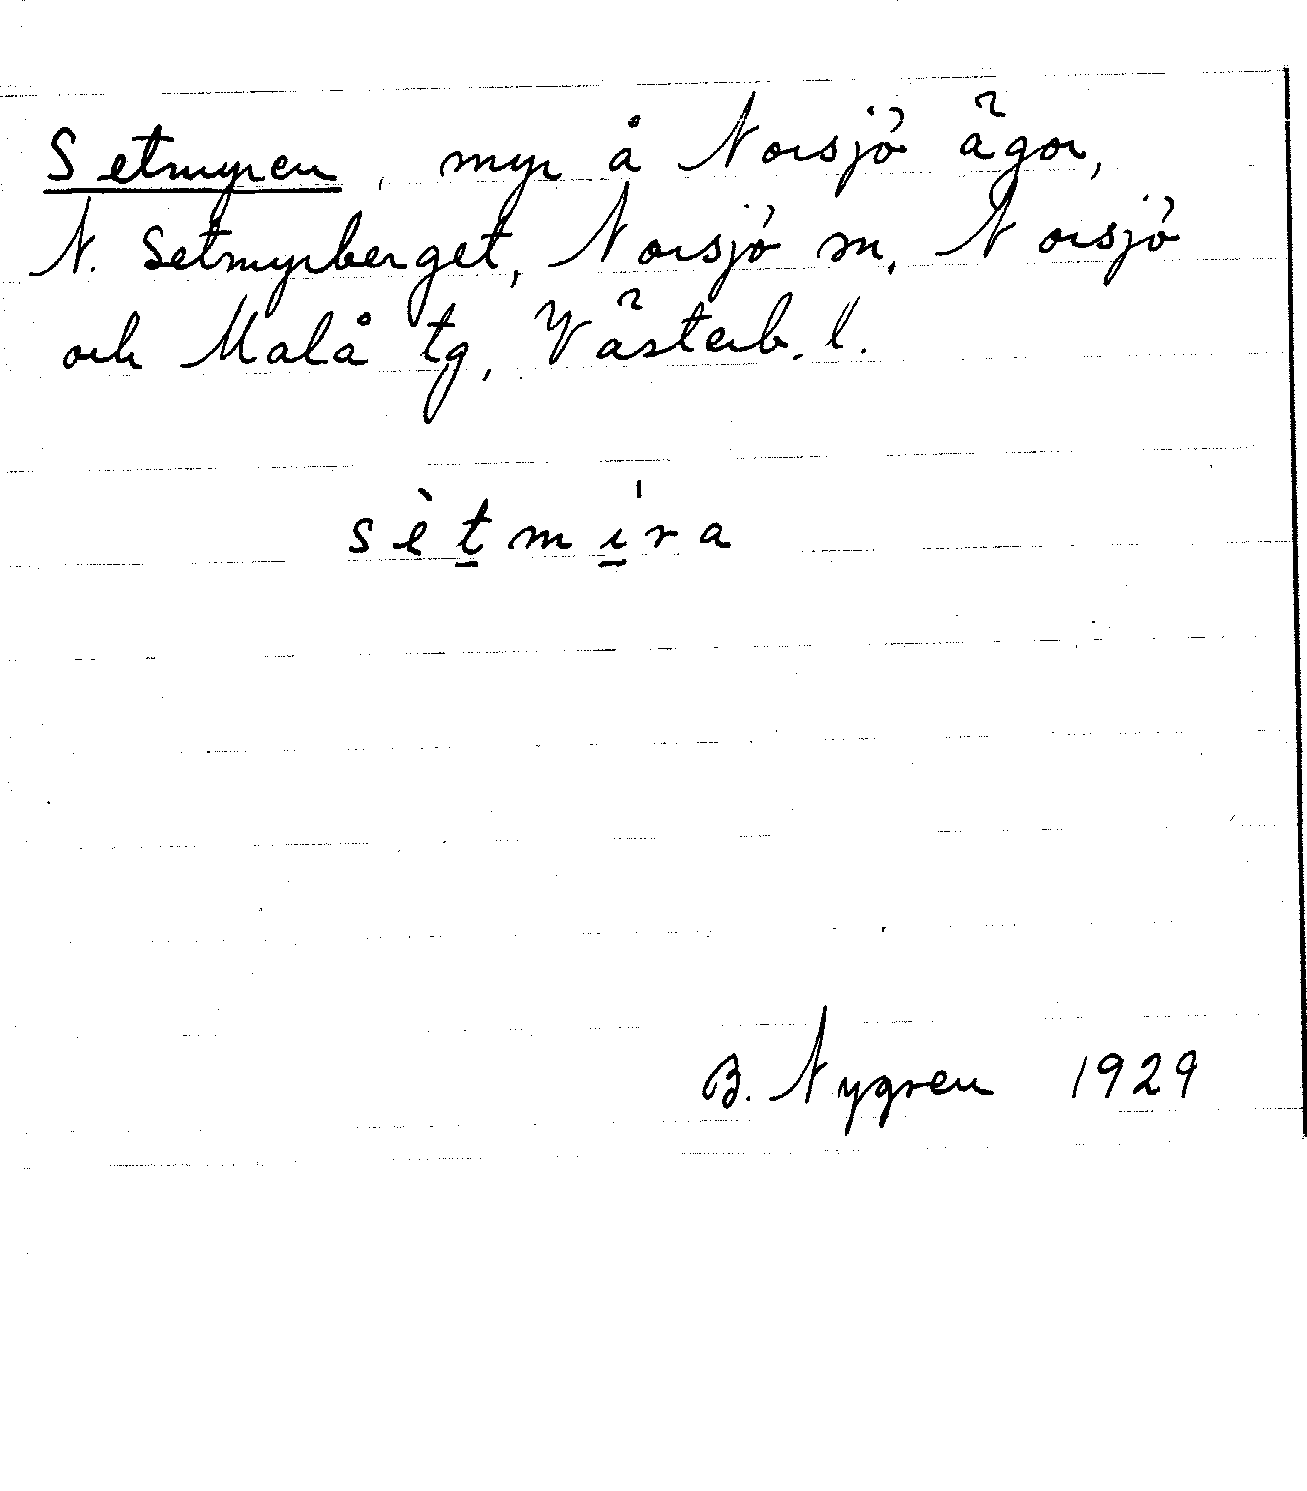 Setmyren, myr å Norsjö ägor,
N. Setmyrberget, Norsjö sn, Norsjö
och Malå tg, Västerb. l.
sètmi̠ra
B. Nygren 1929